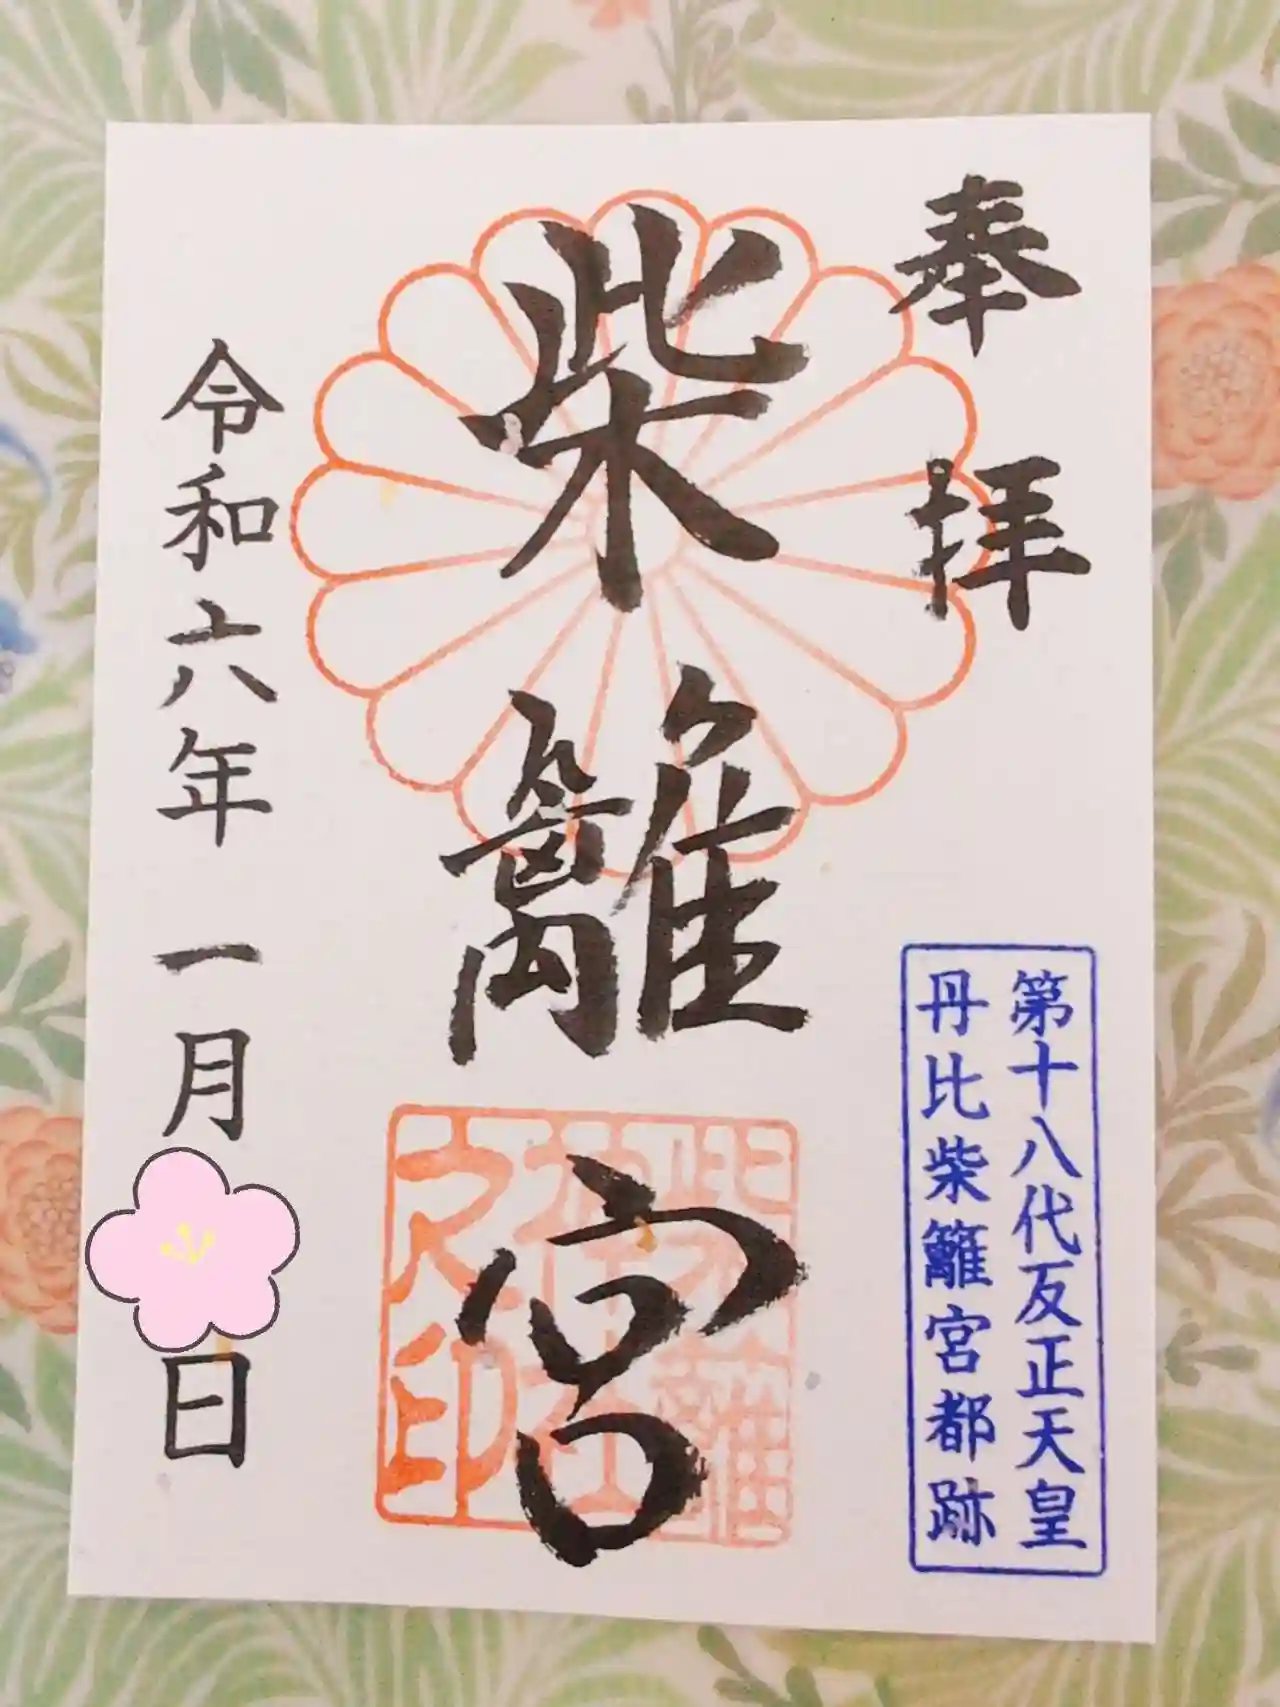 奉拝
第十八代反正天皇
丹比柴籬宮都跡
柴籬宮
柴籬神社之印
令和六年 一月 日